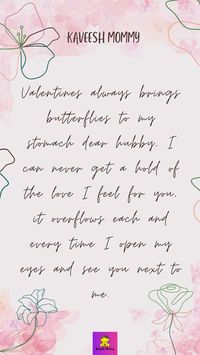 KAVEESH MOMMY
Valentines always brings
butterflies to my
stomach dear hubby, I
can never get a hold of
the love I feel for you,
it overflows each and
every time I open my
eyes and see you next to
me.